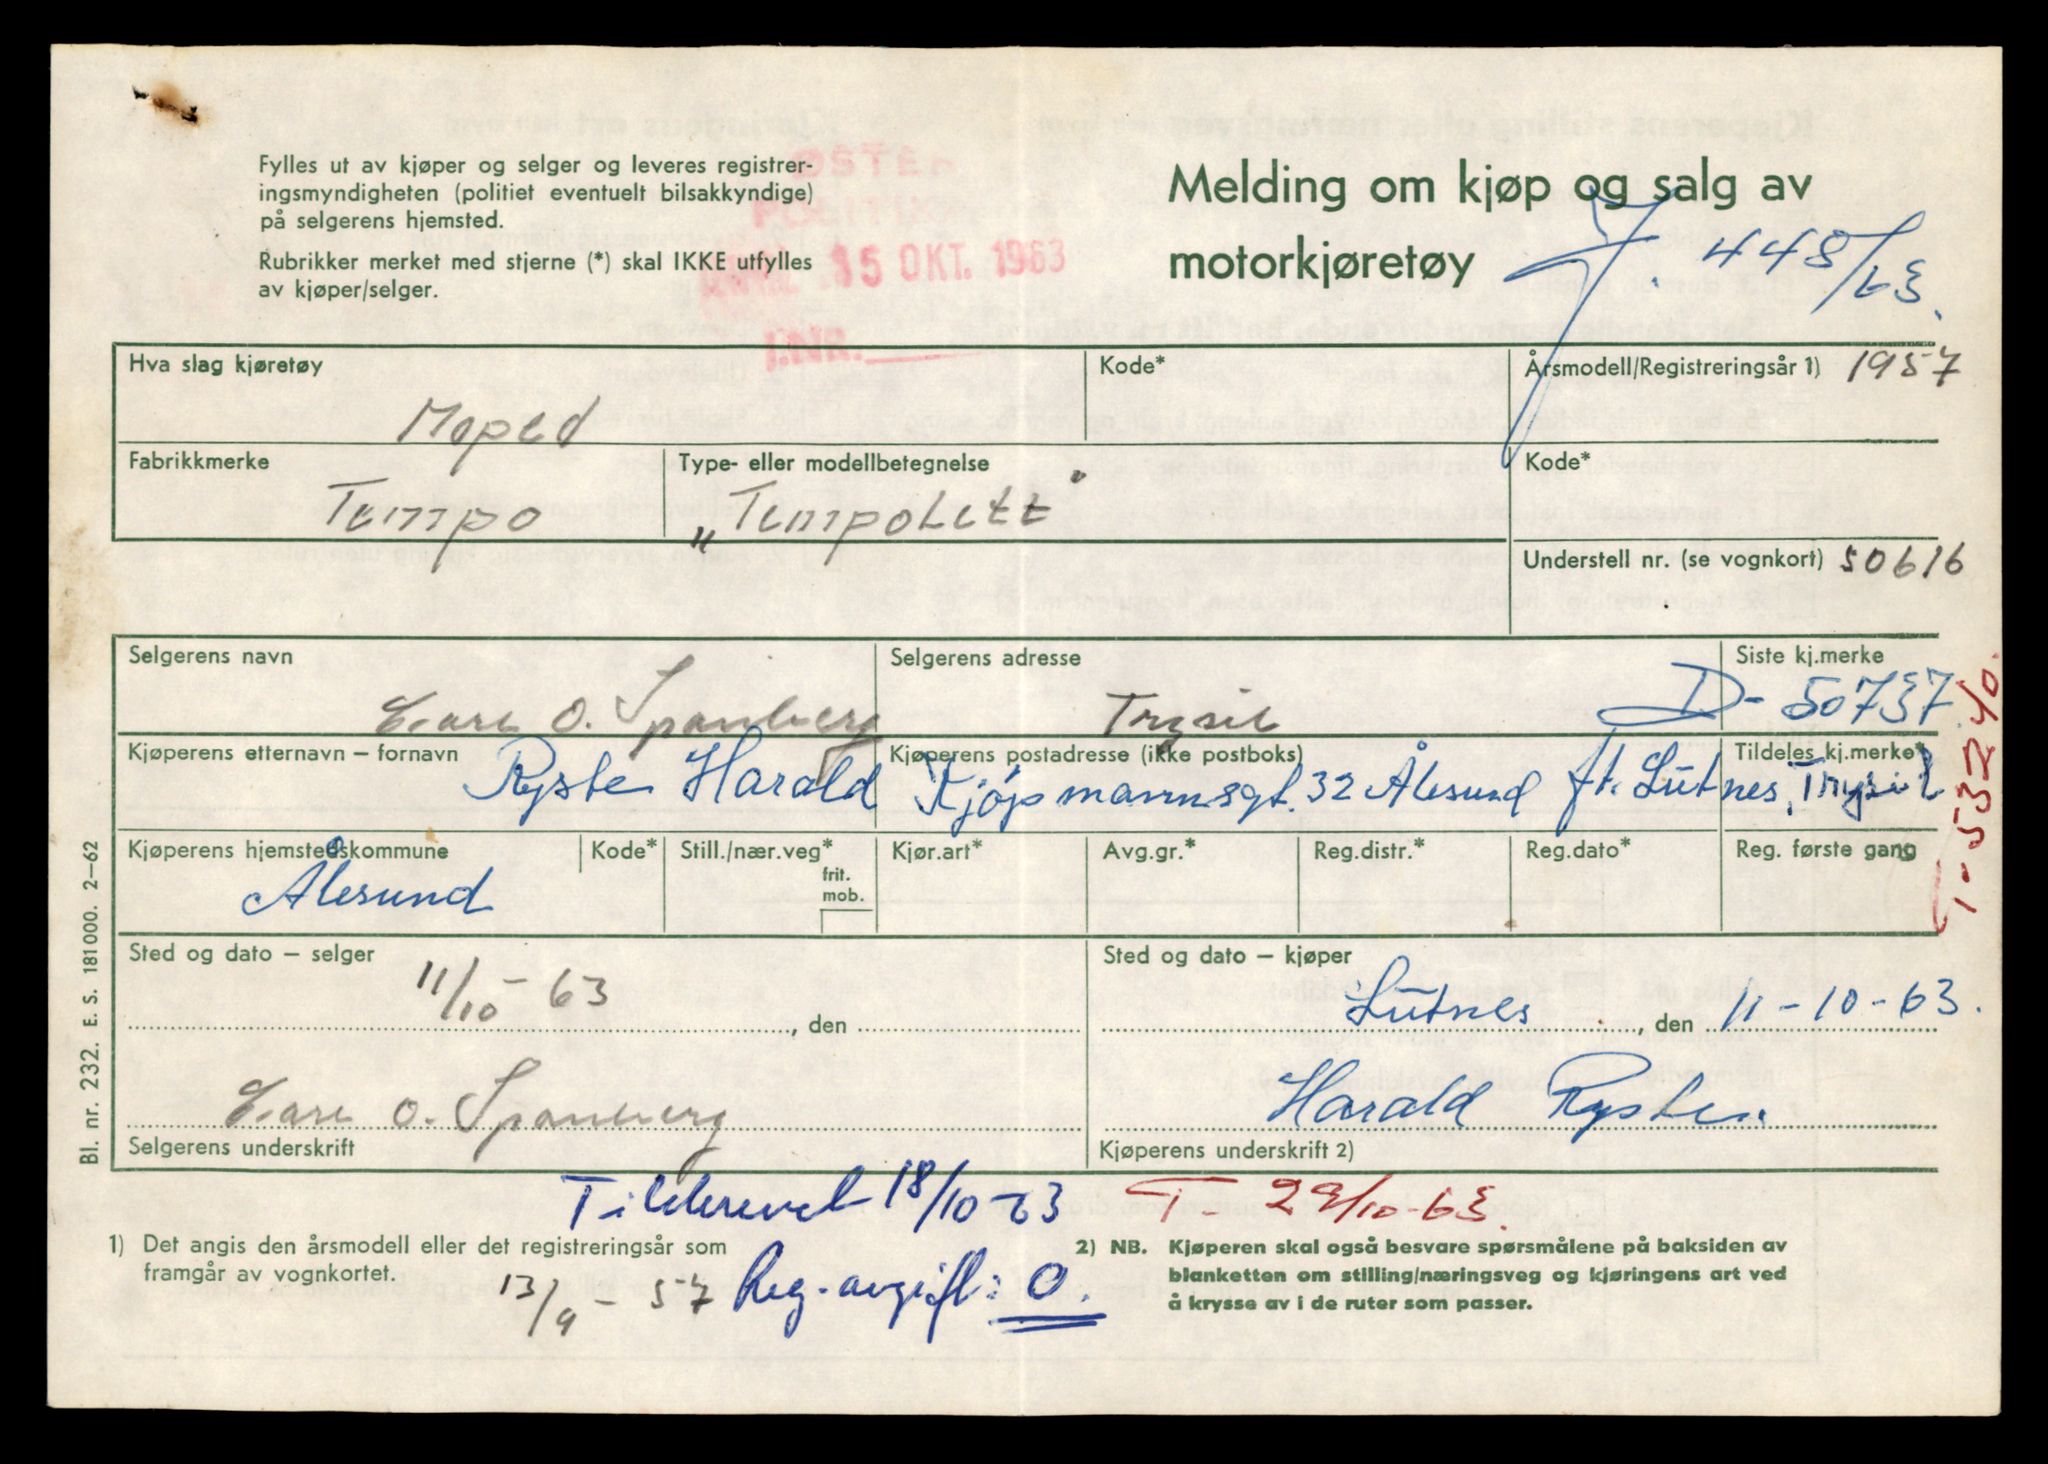 Fylles ut av kjøper og selger og leveres registrer-
ingsmyndigheten (politiet eventuelt bilsakkyndige)
på selgerens hjemsted.
Rubrikker merket med stjerne (*) skal IKKE utfylles
av kjøper/selger.
ØSTER
15 OKT. 1963
J.NR.
Melding om kjøp og salg av
motorkjøretøy
J. 448/63.
Hva slag kjøretøy
Moped
Kode*
Årsmodell/Registreringsår 1) 1957
Fabrikkmerke
Tempo
Type- eller modellbetegnelse
„Tempolett"
Kode*
Understell nr. (se vognkort) 50616
Selgerens navn
O. Spanberg
Selgerens adresse
Trysil
Siste kj.merke
D- 50737
Kjøperens etternavn – fornavn
Ryste Harald
Kjøperens postadresse (ikke postboks)
Kjøpmannsgt. 32 Ålesund ft. Lutnes, Trysil
Tildeles kj.merke*
T-53240.
Kjøperens hjemstedskommune
Ålesund
Kode*
Still./nær.veg*
frit.
mob.
Kjør.art*
Avg.gr.*
Reg.distr.*
Reg.dato*
Reg. første gang
Sted og dato – selger
11/10 - 63
, den
Sted og dato – kjøper
Lutnes, den 11-10-63.
O. Spanberg
Selgerens underskrift
Harald Ryste.
Kjøperens underskrift 2)
Tilskrevet 18/10-63
T- 29/10-63.
1) Det angis den årsmodell eller det registreringsår som
framgår av vognkortet.
13/9 - 57
Reg.avgift: 0.
2) NB. Kjøperen skal også besvare spørsmålene på baksiden av
blanketten om stilling/næringsveg og kjøringens art ved
å krysse av i de ruter som passer.
Bl. nr. 232. E. S. 181000. 2–62